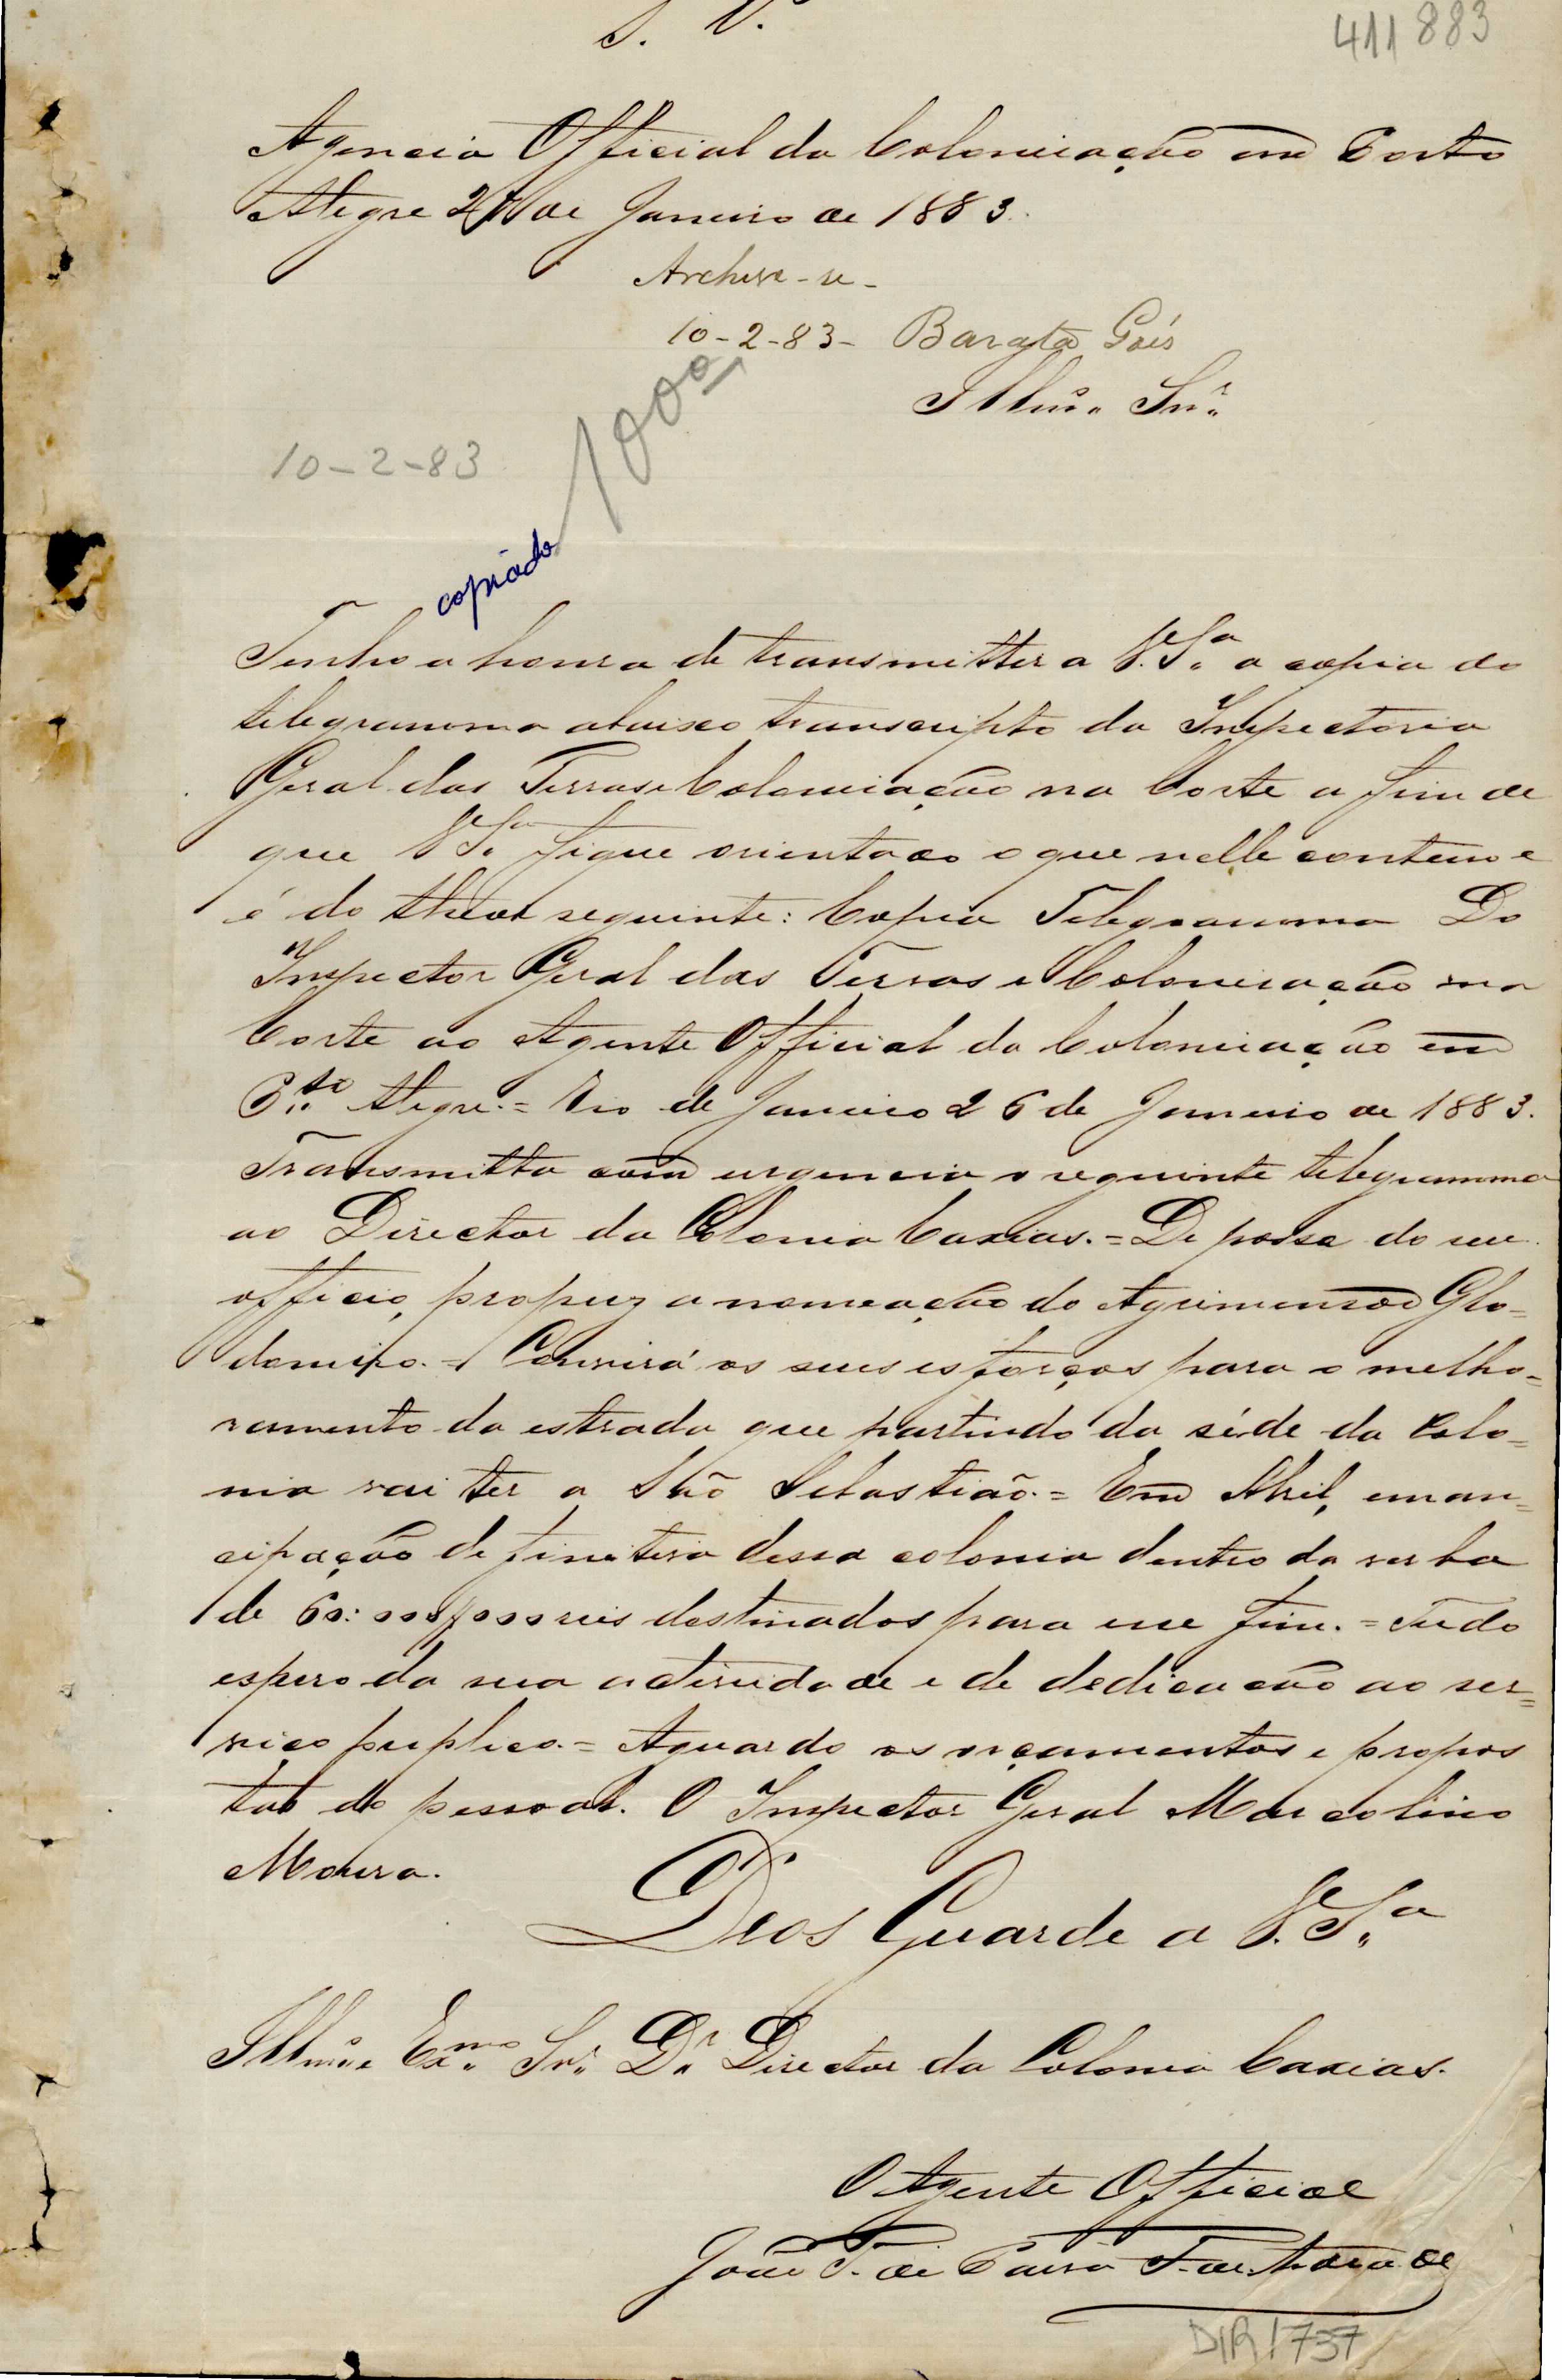 S. P.
411883
Agencia Official da Colonisação em Porto
Alegre 27 de Janeiro de 1883.
Archive-se-
10-2-83- Barata Góis
Illmº. Snr.
1000
10-2-83
copiado
Tenho a honra de transmitter a V. Sª a copia do
telegramma abaixo transcripto da Inspectoria
Geral das Terras e Colonisação na Corte a fim de
que V Sª fique orientado o que nelle contem e
é do theor seguinte: Copia Telegramma Do
Inspector Geral das Terras e Colonisação na
Corte ao Agente Official da Colonisação em
Pto. Alegre.= Rio de Janeiro 26 de Janeiro de 1883.
Transmitta com urgencia o seguinte telegramma
ao Director da Colonia Caxias.= De posse do seu
officio, propuz a nomeação do Agrimensor Glo=
domiro.= Convirá os seus esforços para o melho=
ramento da estrada que partindo da séde da Colo=
nia vai ter a São Sebastião.= Em Abril, eman=
cipação definitiva dessa colonia dentro da verba
de 60:000$000 reis destinados para esse fim.= Tudo
espero da sua actividade e de dedicacão ao ser=
viço puplico.= Aguardo os orçamentos e propos
tas do pessoal. O Inspector Geral Marcolino
Moura.
Deos Guarde a V. Sª
Illmº. e Exmo. Snr. Dr. Director da Colonia Caxias.
O Agente Official
João T. de
DIR 1737